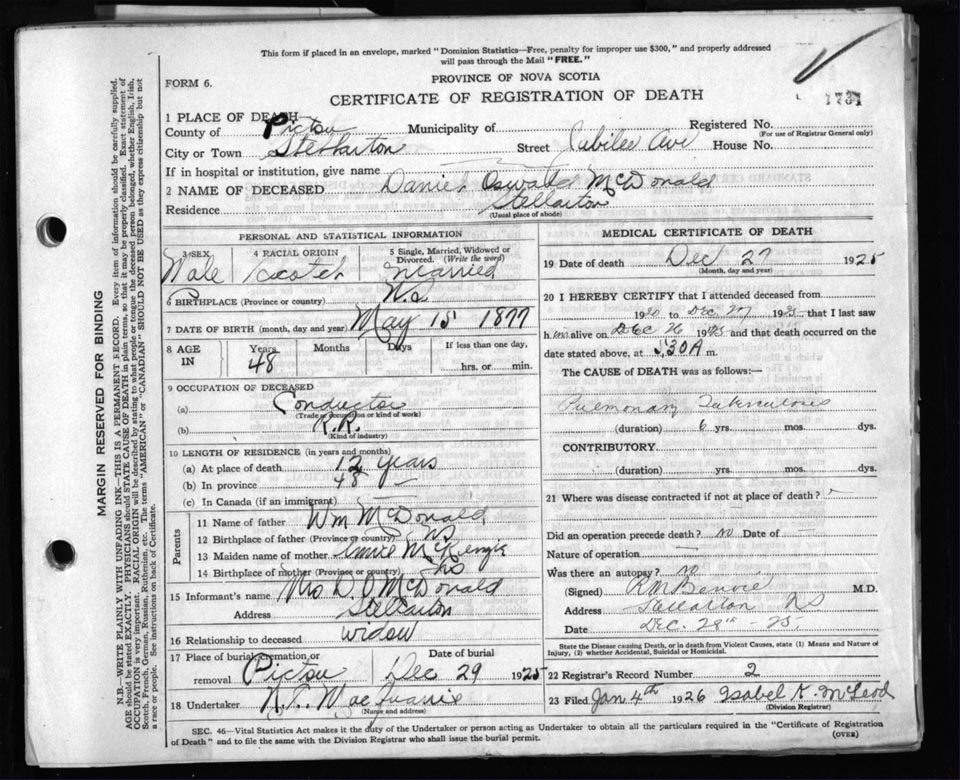 This form if placed in an envelope, marked "Dominion Statistics—Free, penalty for improper use $300," and properly addressed
will pass through the Mail "FREE."
FORM 6.
PROVINCE OF NOVA SCOTIA
CERTIFICATE OF REGISTRATION OF DEATH
1 PLACE OF DEATH
County of Pictou Municipality of Registered No.
(For use of Registrar General only)
City or Town Stellarton Street Jubilee Ave House No.
If in hospital or institution, give name
2 NAME OF DECEASED Daniel Oswald McDonald
Residence Stellarton
(Usual place of abode)
PERSONAL AND STATISTICAL INFORMATION
3 SEX 4 RACIAL ORIGIN 5 Single, Married, Widowed or Divorced. (Write the word)
Male Scotch Married
6 BIRTHPLACE (Province or country) N.S.
7 DATE OF BIRTH (month, day and year) May 15 1877
8 AGE IN Years 48 Months Days If less than one day, hrs. or min.
9 OCCUPATION OF DECEASED
(a) Conductor
(Trade or occupation or kind of work)
(b) R.R.
(Kind of industry)
10 LENGTH OF RESIDENCE (in years and months)
(a) At place of death 12 years
(b) In province 48 —
(c) In Canada (if an immigrant)
Parents
11 Name of father Wm McDonald
12 Birthplace of father (Province or country) NS
13 Maiden name of mother
14 Birthplace of mother (Province or country) NS
15 Informant's name Mrs D. O McDonald
Address Stellarton
16 Relationship to deceased widow
17 Place of burial, cremation or removal Pictou Date of burial Dec 29 1925
18 Undertaker
(Name and address)
MEDICAL CERTIFICATE OF DEATH
19 Date of death Dec 27 1925
(Month, day and year)
20 I HEREBY CERTIFY that I attended deceased from
1920 to Dec 27 1925, that I last saw
him alive on Dec 26 1925 and that death occurred on the
date stated above, at 5.30 A m.
The CAUSE of DEATH was as follows:—
Pulmonary Tuberculosis
(duration) 6 yrs. mos. dys.
CONTRIBUTORY
(duration) yrs. mos. dys.
21 Where was disease contracted if not at place of death?
Did an operation precede death? No Date of —
Nature of operation —
Was there an autopsy? No
(Signed) M.D.
Address Stellarton NS
Date Dec. 28th - 25
State the Disease causing Death, or in death from Violent Causes, state (1) Means and Nature of
Injury, (2) whether Accidental, Suicidal or Homicidal.
22 Registrar's Record Number 2
23 Filed Jan 4th 1926 Isabel K. McLeod
(Division Registrar)
SEC. 46—Vital Statistics Act makes it the duty of the Undertaker or person acting as Undertaker to obtain all the particulars required in the "Certificate of Registration
of Death" and to file the same with the Division Registrar who shall issue the burial permit.
(OVER)
MARGIN RESERVED FOR BINDING
N.B.—WRITE PLAINLY WITH UNFADING INK—THIS IS A PERMANENT RECORD. Every item of information should be carefully supplied.
AGE should be stated EXACTLY. PHYSICIANS should STATE CAUSE OF DEATH in plain terms, so that it may be properly classified. Exact statement of
OCCUPATION is very important. RACIAL ORIGIN will be described by stating to what people or tongue the deceased person belonged, whether English, Irish,
Scotch, French, German, Russian, Ruthenian, etc. The terms "AMERICAN" or "CANADIAN" SHOULD NOT BE USED as they express citizenship but not
a race or people. See instructions on back of Certificate.